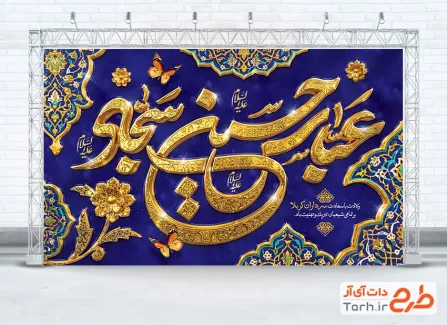 عباس حسین سجاد
علیه السلام
علیه السلام
علیه السلام
ولادت باسعادت سرداران کربلا
بر تمامی شیعیان تبریک و تهنیت باد
طرح دات آی آر
Tarh.ir